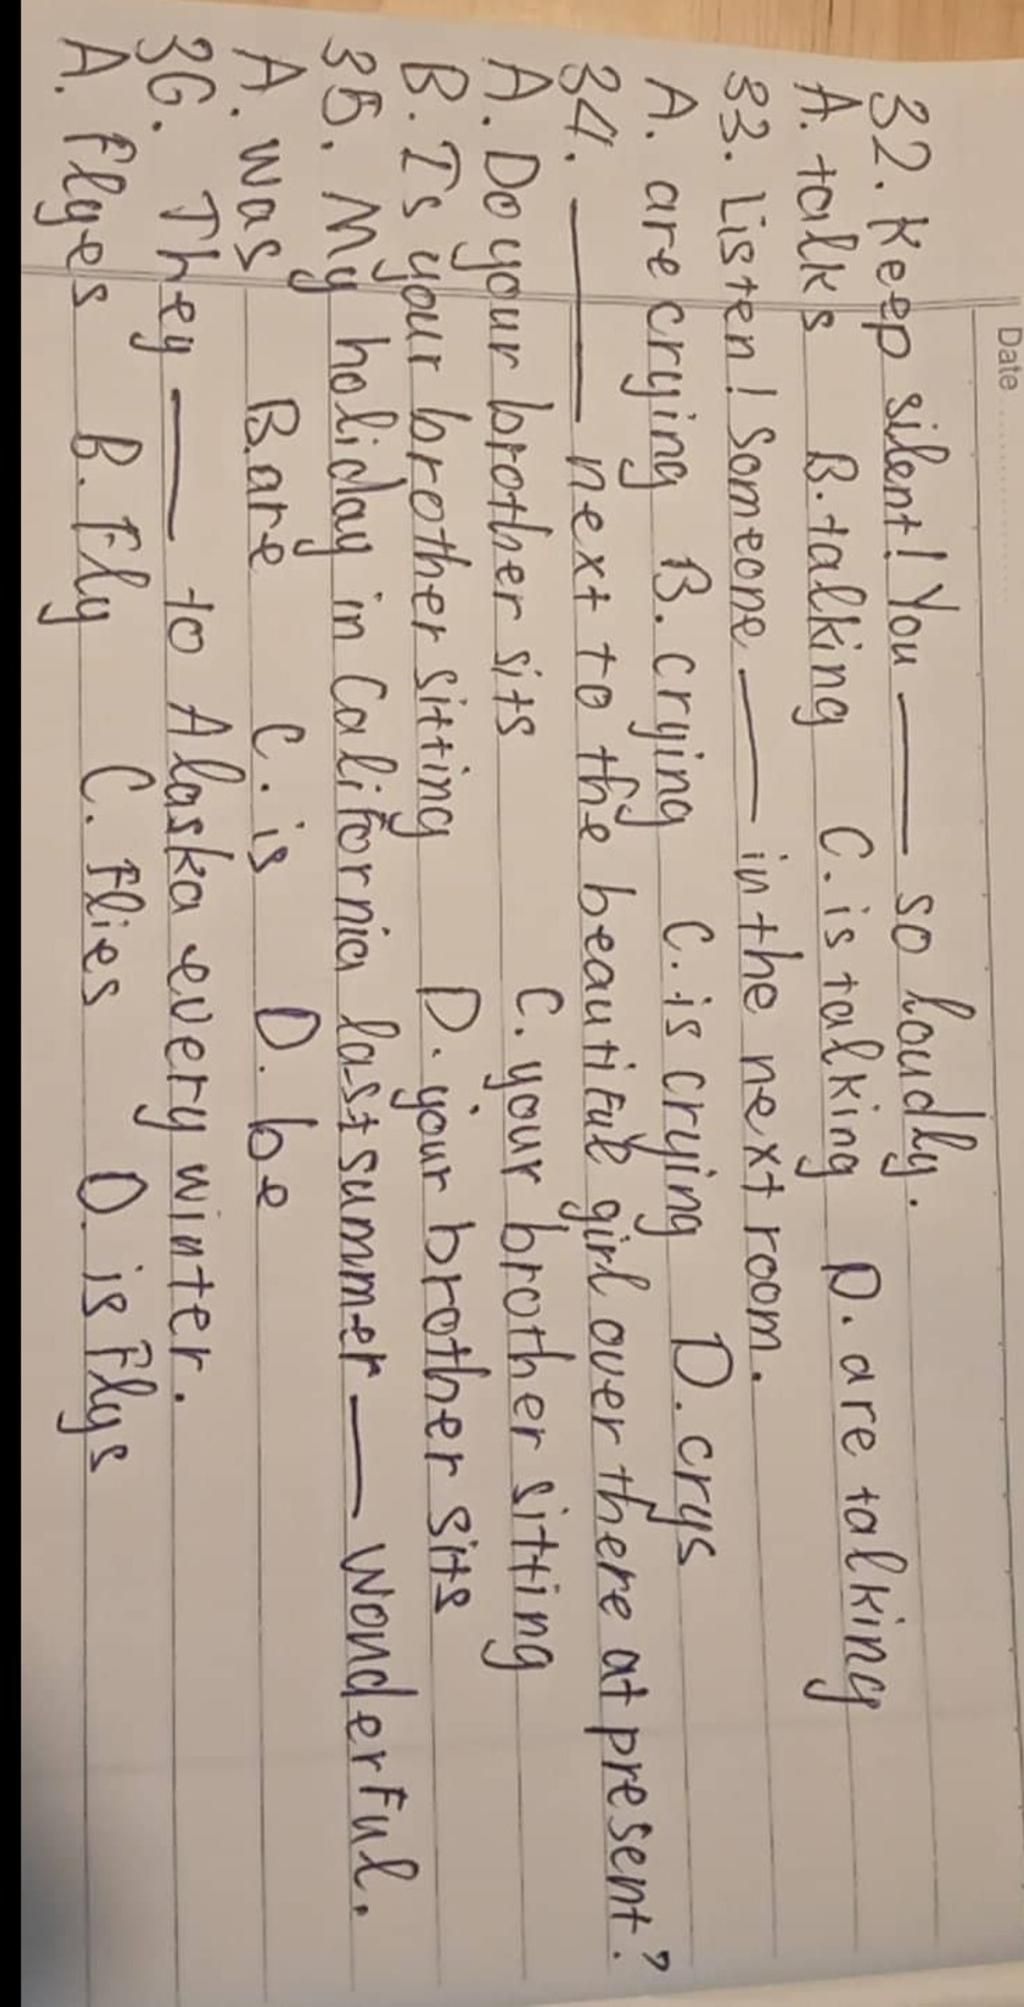 Date
32. Keep silent! You ____ so loudly.
A. talks B. talking C. is talking D. are talking
33. Listen! Someone ____ in the next room.
A. are crying B. crying C. is crying D. crys
34. ____ next to the beautiful girl over there at present?
A. Do your brother sits C. your brother sitting
B. Is your brother sitting D. your brother sits
35. My holiday in California last summer ____ wonderful.
A. was B. are C. is D. be
36. They ____ to Alaska every winter.
A. flyes B. fly C. flies D. is flys